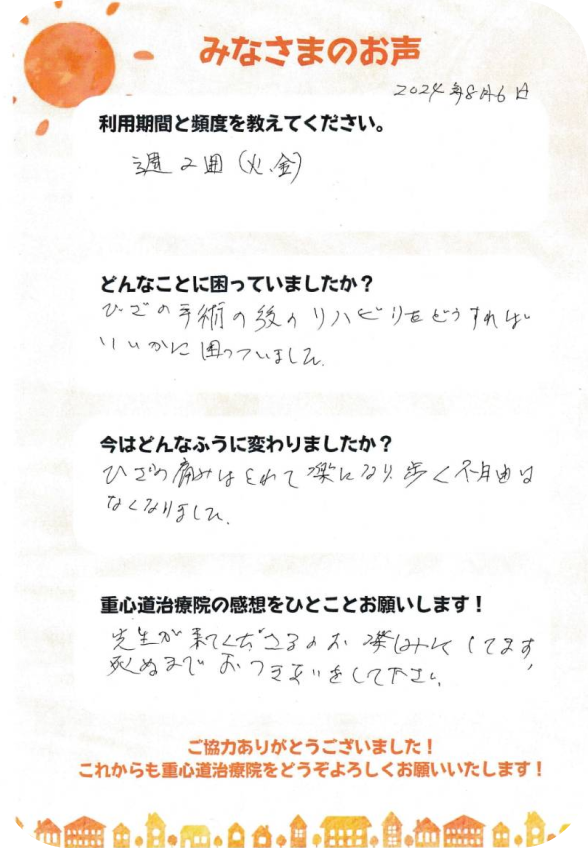 みなさまのお声
2024年8月6日
利用期間と頻度を教えてください。
週2回(火、金)
どんなことに困っていましたか?
ひざの手術の後のリハビリをどうすれば
いいかに困っていました。
今はどんなふうに変わりましたか?
ひざの痛みはとれて楽になり、歩く不自由は
なくなりました。
重心道治療院の感想をひとことお願いします!
先生が来てくださるのを楽しみにしてます。
死ぬまでおつき合いをして下さい。
ご協力ありがとうございました!
これからも重心道治療院をどうぞよろしくお願いいたします!